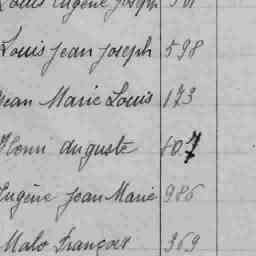 Louis Eugène Joseph
Louis Jean Joseph 598
Jean Marie Louis 173
Henri Auguste 607
Eugène Jean Marie 986
Malo François 369